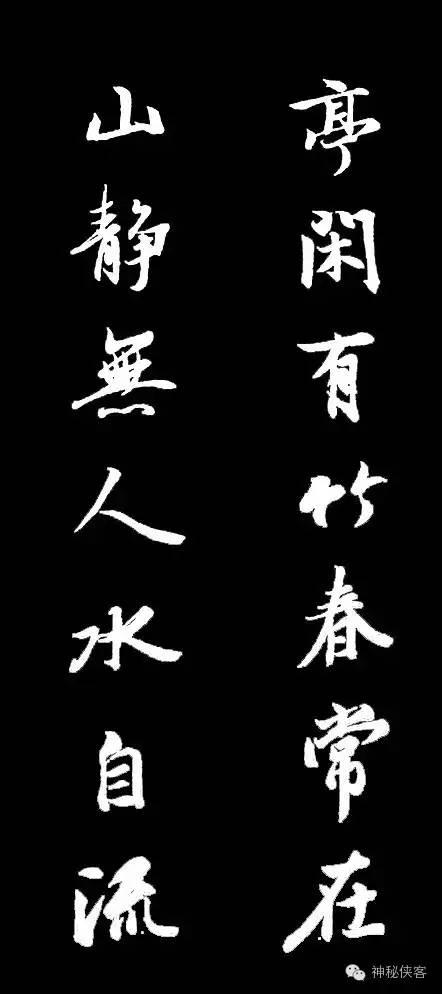 亭閑有竹春常在
山静無人水自流
神秘侠客